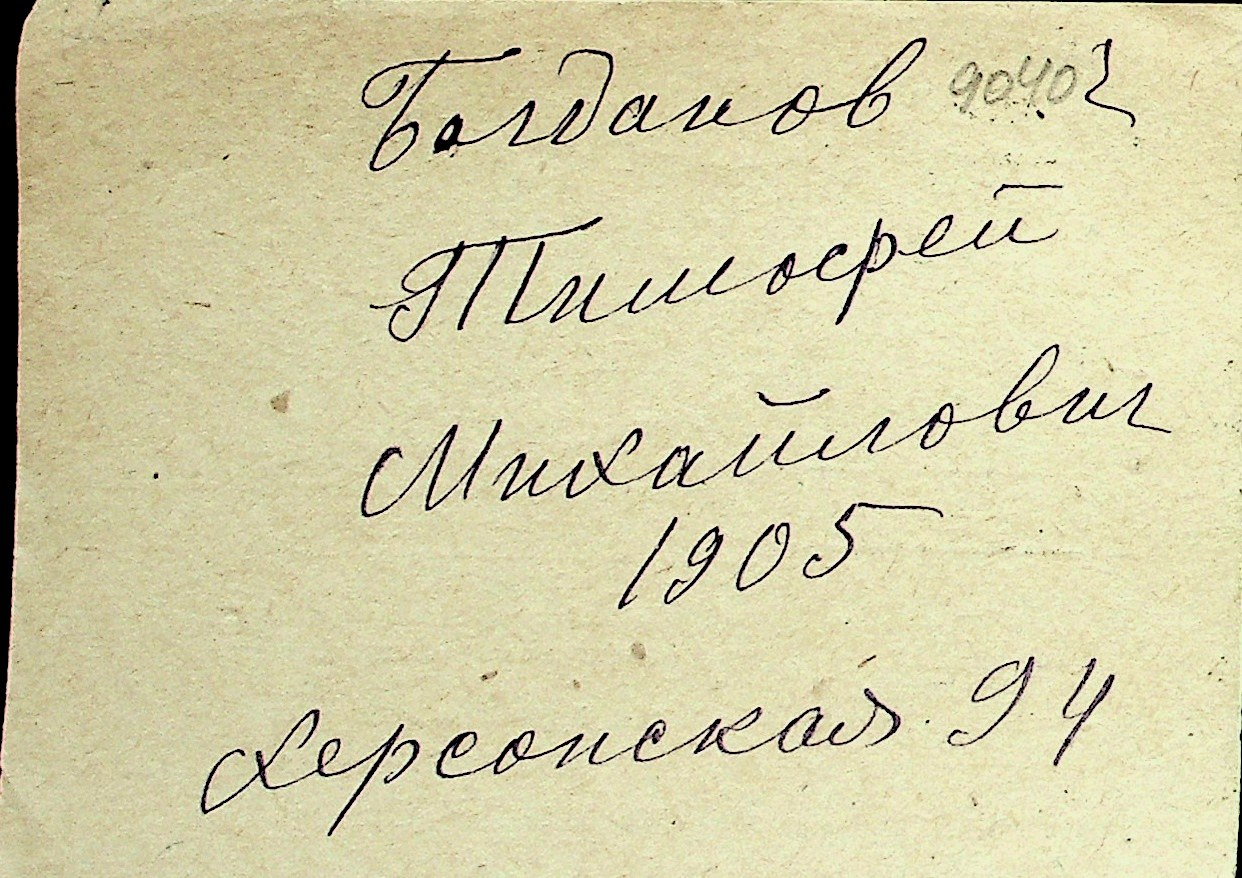 Богданов 9040
Тимофей
Михайлович
1905
Херсонская 94